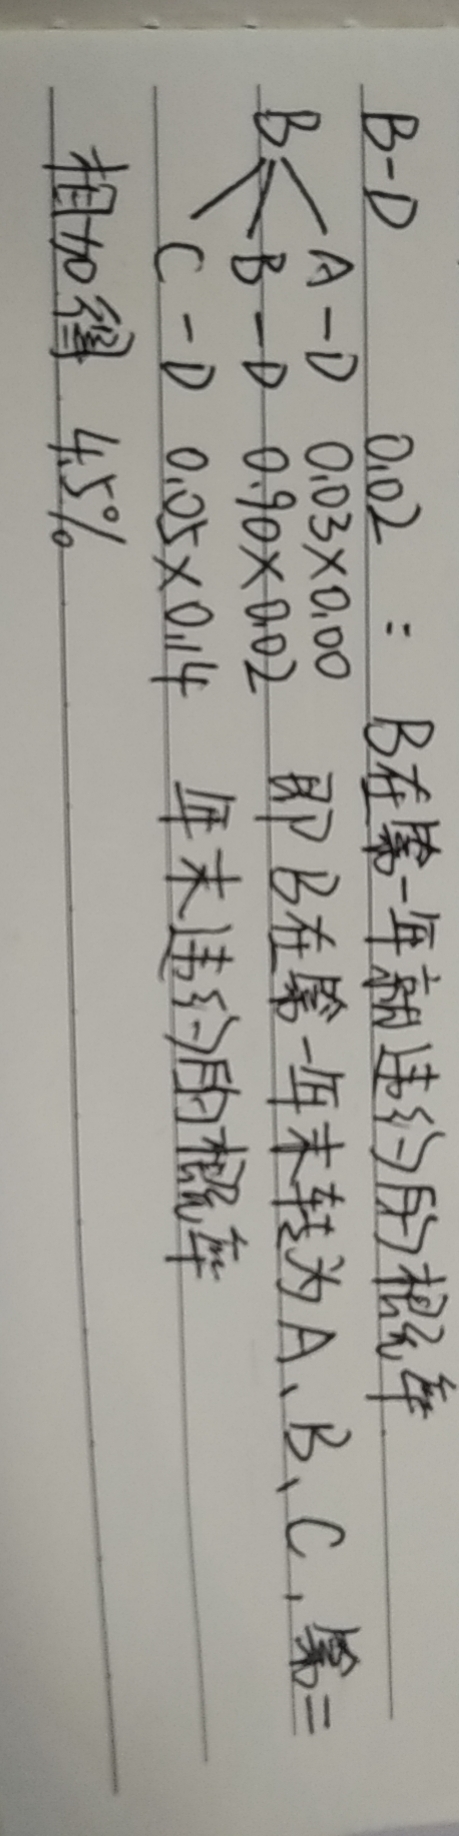 B-D 0.02 : B在第一年就违约的概率
A-D 0.03×0.00 即B在第一年末转为A、B、C,第二
B B-D 0.90×0.02 年末违约的概率
C-D 0.05×0.14
相加得 4.5%